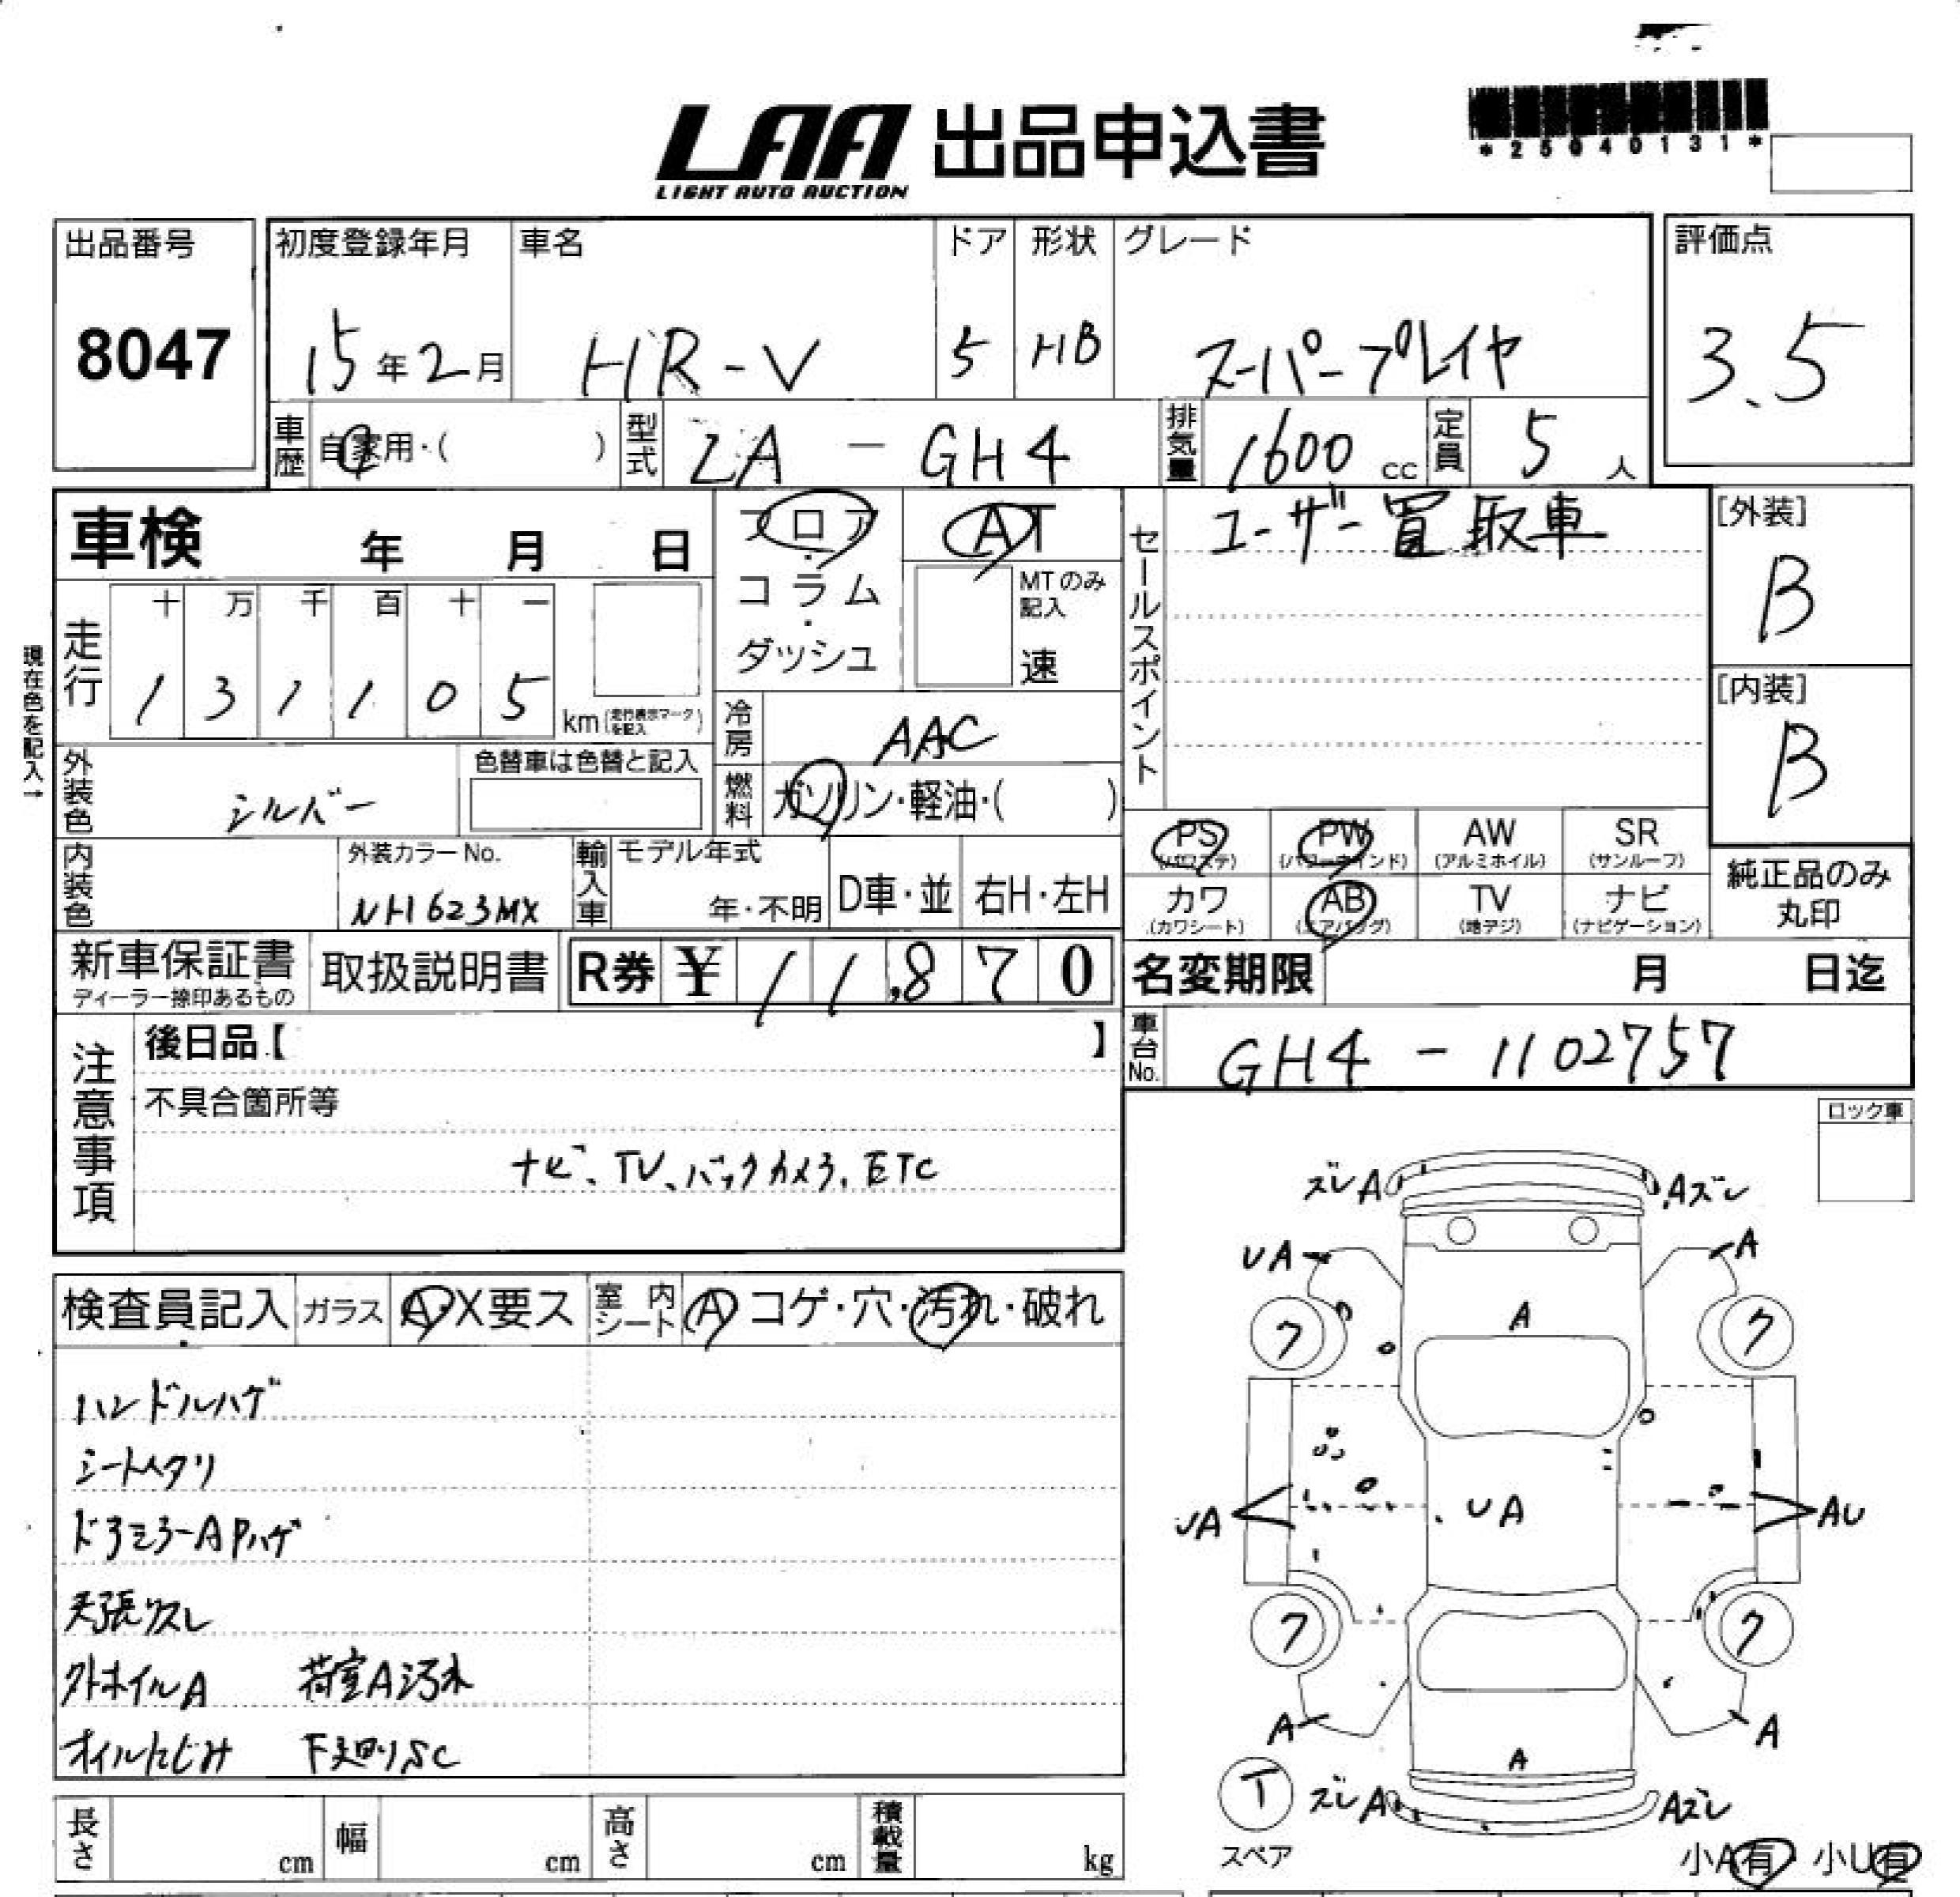 LAA 出品申込書
LIGHT AUTO AUCTION
*25040131*
出品番号
8047
初度登録年月
15年2月
車名
HR-V
ドア
5
形状
HB
グレード
スーパープレイヤ
評価点
3.5
車歴 自家用・( )
型式 LA-GH4
排気量 1600 cc
定員 5 人
車検 年 月 日
フロア・コラム・ダッシュ
AT
MTのみ記入
速
セールスポイント
ユーザー買取車
[外装]
B
[内装]
B
現在色を記入→
走行
十 万 千 百 十 一
1 3 1 1 0 5 km (走行表示マークを記入)
冷房 AAC
燃料 ガソリン・軽油・( )
外装色 シルバー
色替車は色替と記入
内装色
外装カラーNo.
NH623MX
輸入車 モデル年式
年・不明
D車・並
右H・左H
PS (パワステ)
PW (パワーウインド)
AW (アルミホイル)
SR (サンルーフ)
カワ (カワシート)
AB (エアバッグ)
TV (地デジ)
ナビ (ナビゲーション)
純正品のみ丸印
新車保証書
ディーラー捺印あるもの
取扱説明書
R券 ¥ 11,870
名変期限 月 日迄
車台No. GH4-1102757
注意事項
後日品【 】
不具合箇所等
ナビ、TV、バックカメラ、ETC
ロック車
検査員記入
ガラス A・X要ス
室内シート A コゲ・穴・汚れ・破れ
ハンドルハゲ
シートヘタリ
ドアミラーAPハゲ
天張リスレ
外ホイルA 荷室A汚れ
オイルにじみ 下廻りSC
ズレA
Aズレ
UA
A
ク
A
ク
UA
UA
AU
ク
ク
A
A
A
T
スペア
ズレA
Aズレ
小A有 小U有
長さ cm
幅 cm
高さ cm
積載量 kg